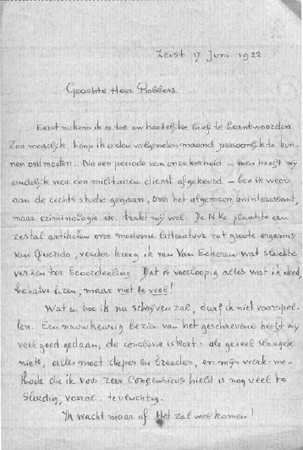 Zeist 17 Juni 1922
Geachte Heer Robbers.
Eerst nu kom ik er toe uw hartelijke brief te beantwoorden.
Zoo mogelijk, hoop ik u den volgenden maand persoonlijk te kun-
nen ontmoeten. Na een periode van onzekerheid – men heeft mij
eindelijk voor den militairen dienst afgekeurd – ben ik weer
aan de rechts studie gegaan, over het algemeen oninteressant,
maar criminologie etc. trekt mij wel. Je N.Kr. plaatste een
zestal artikelen over moderne litteratuur tot groote ergernis
van Querido, verder kreeg ik van Van Eckeren wat slechte
verzen ter beoordeeling. Dat is voorloopig alles wat ik deed,
behalve lezen, maar niet te veel!
Wat en hoe ik nu schrijven zal, durf ik niet voorspel-
len. Een nauwkeurig bezien van het geschrevene heeft mij
veel goed gedaan, de conclusie is kort: als geheel slaagde
niets, alles moet dieper en breeder, en mijn werk-me-
thode die ik voor zeer consciëntieus hield is nog veel te
slordig, vooral te vluchtig.
Ik wacht maar af. Het zal wel komen!